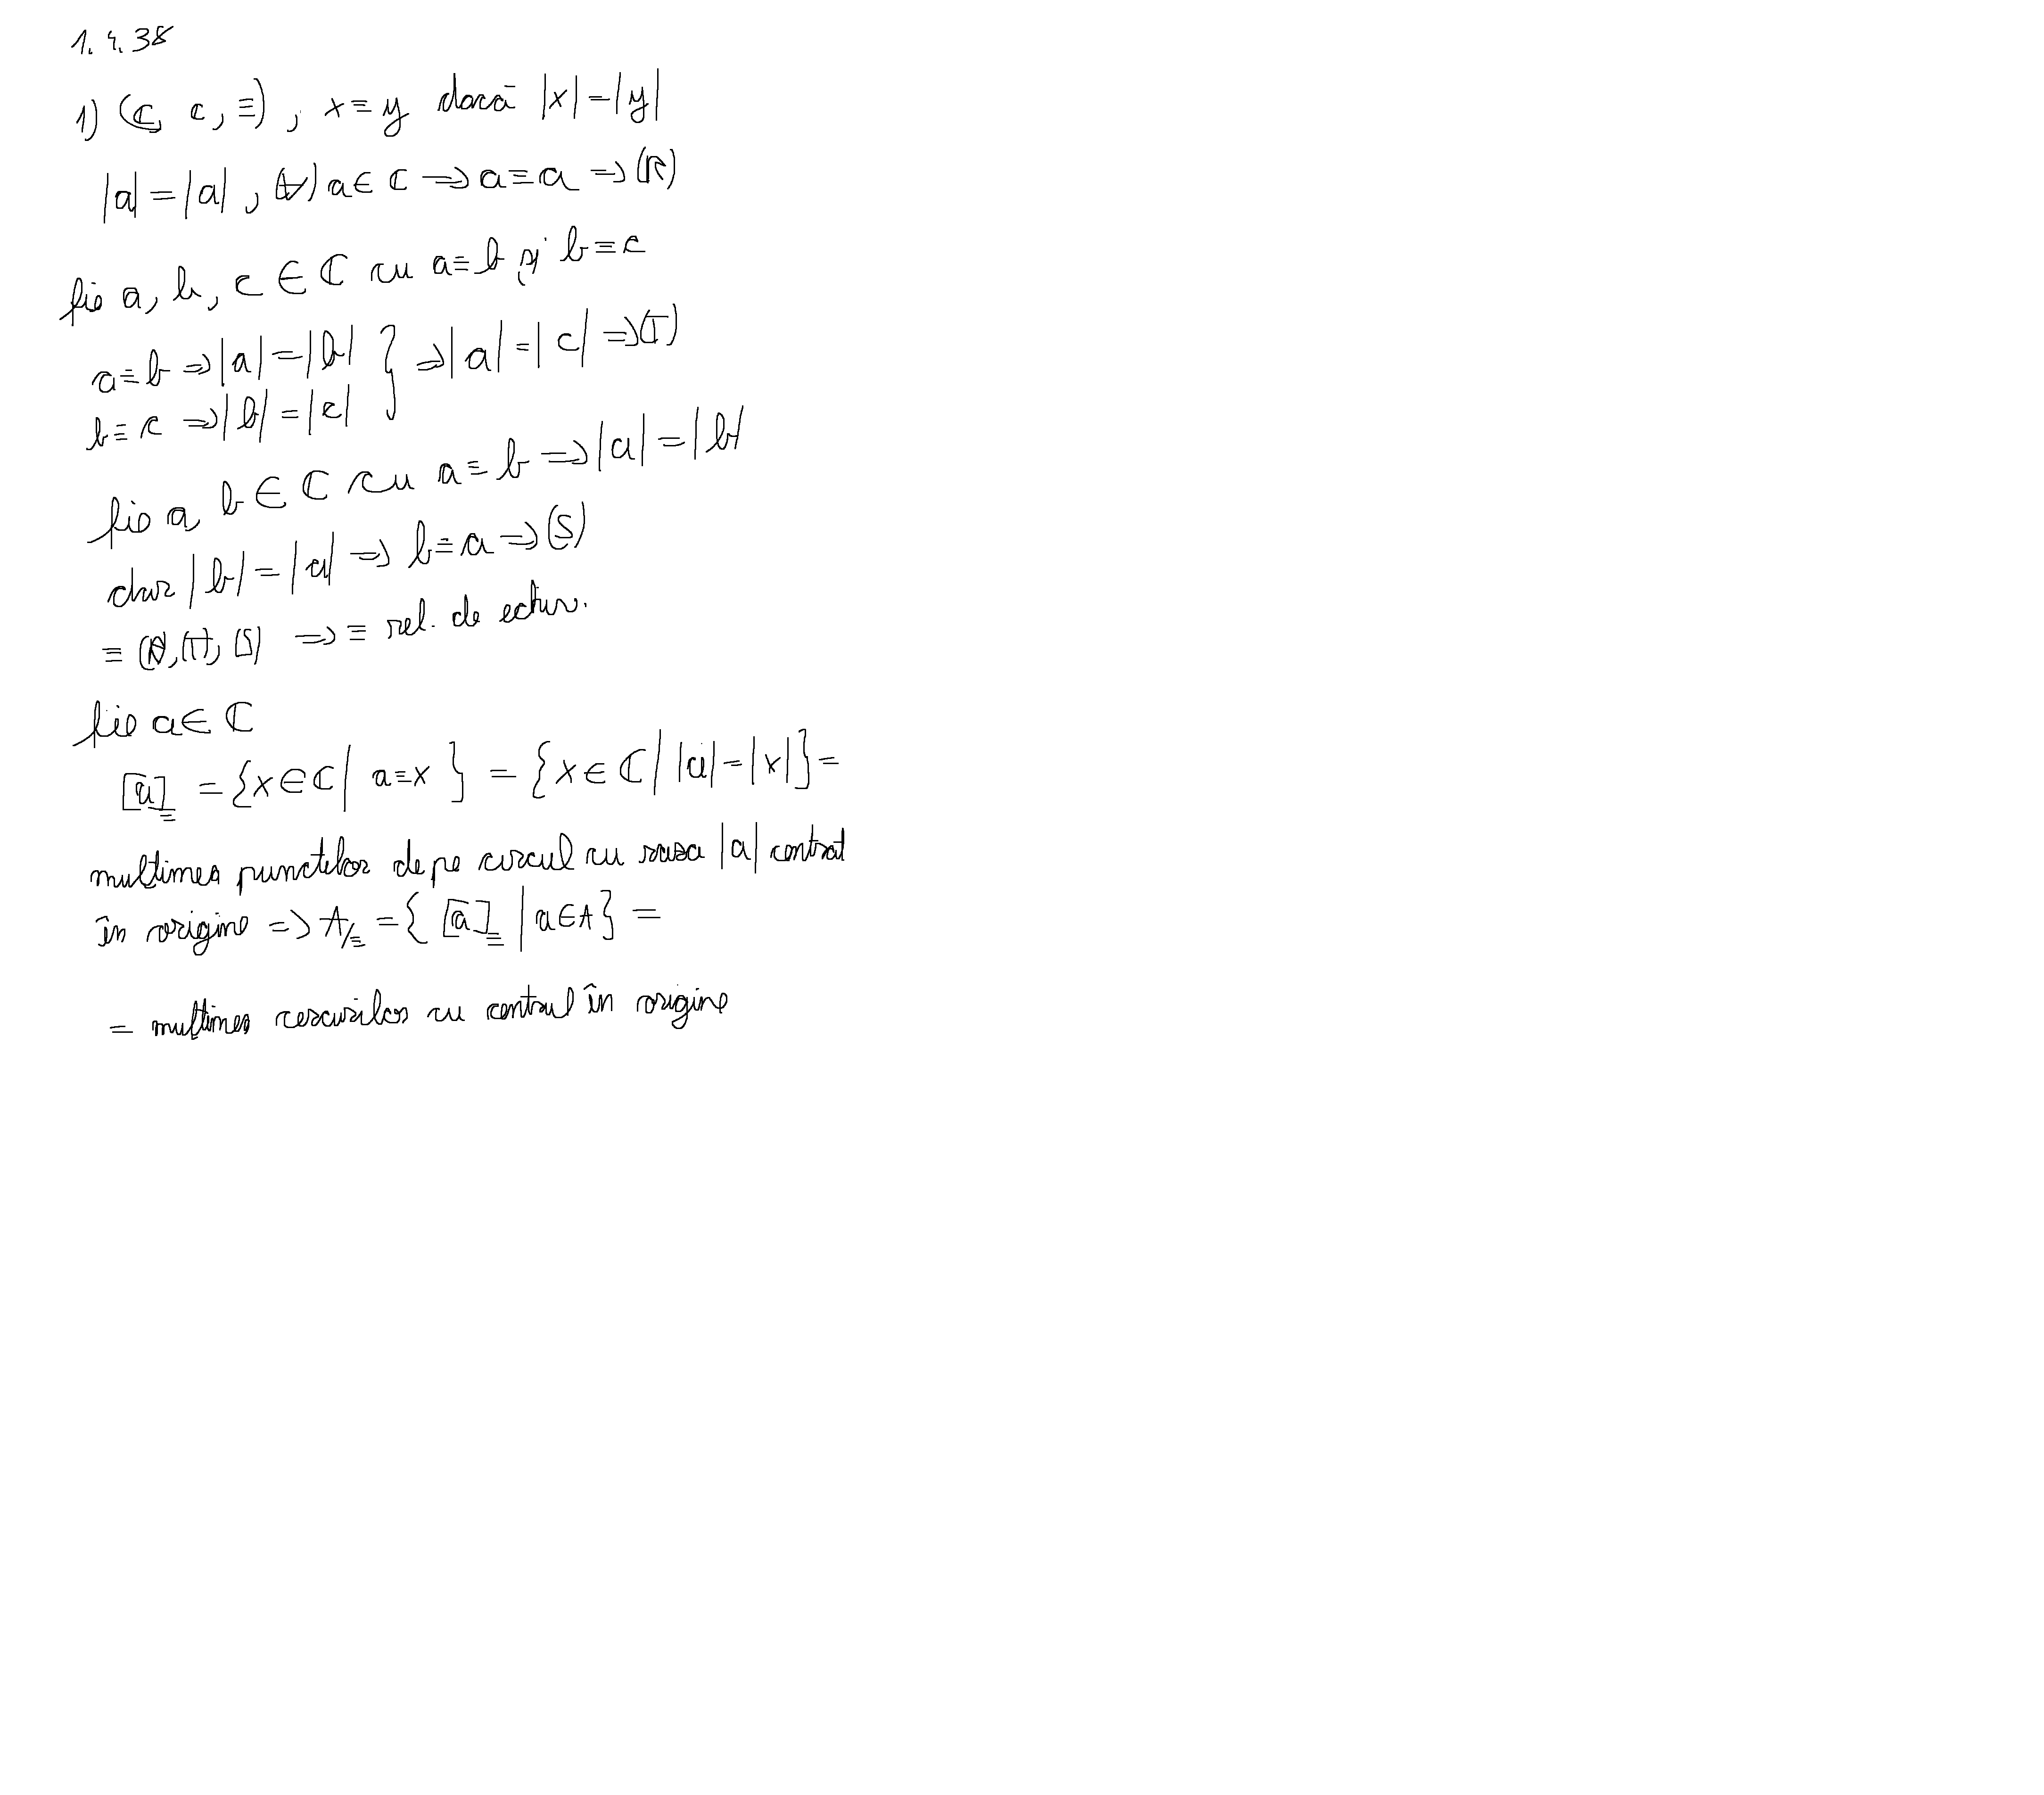 1.4.38
1) (ℂ, ℂ, ≡), x≡y dacă |x|=|y|
|a|=|a|, (∀) a∈ℂ ⇒ a≡a ⇒ (R)
fie a, b, c ∈ ℂ cu a≡b și b≡c
a≡b ⇒ |a|=|b| } ⇒ |a|=|c| ⇒ (T)
b≡c ⇒ |b|=|c|
fie a, b ∈ ℂ cu a≡b ⇒ |a|=|b|
dar |b|=|a| ⇒ b≡a ⇒ (S)
≡ (R), (T), (S) ⇒ ≡ rel. de echiv.
fie a∈ℂ
[a]≡ = {x∈ℂ | a≡x } = {x∈ℂ | |a|=|x|} =
multimea punctelor de pe cercul cu raza |a| centrat
în origine ⇒ A/≡ = { [a]≡ | a∈A} =
= multimea cercurilor cu centrul în origine